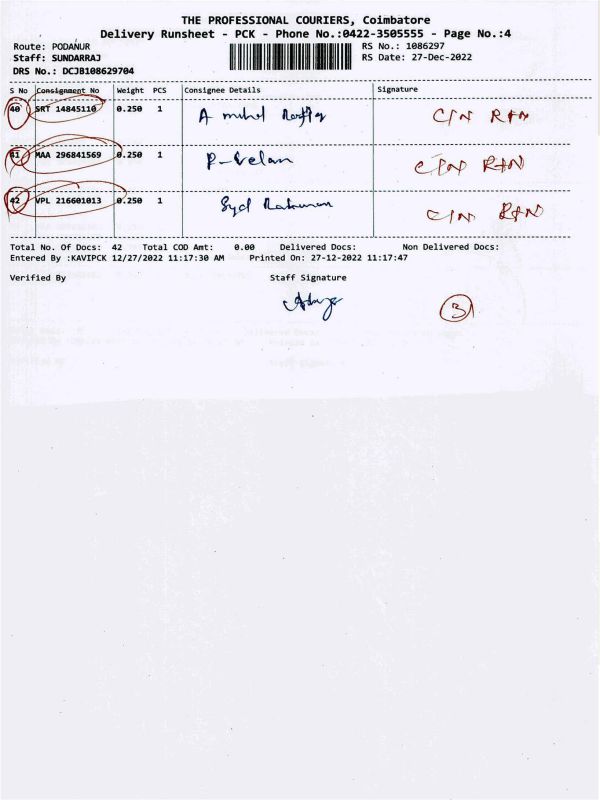 THE PROFESSIONAL COURIERS, Coimbatore
Delivery Runsheet - PCK - Phone No.:0422-3505555 - Page No.:4
Route: PODANUR
Staff: SUNDARRAJ
DRS No.: DCJB108629704
RS No.: 1086297
RS Date: 27-Dec-2022
S No Consignment No Weight PCS Consignee Details Signature
40 SRT 14845110 0.250 1 A C/N R
41 MAA 296841569 0.250 1 P-Velan C/N R
42 VPL 216601013 0.250 1 Syd Rahuman C/N R
Total No. Of Docs: 42 Total COD Amt: 0.00 Delivered Docs: Non Delivered Docs:
Entered By :KAVIPCK 12/27/2022 11:17:30 AM Printed On: 27-12-2022 11:17:47
Verified By Staff Signature
3